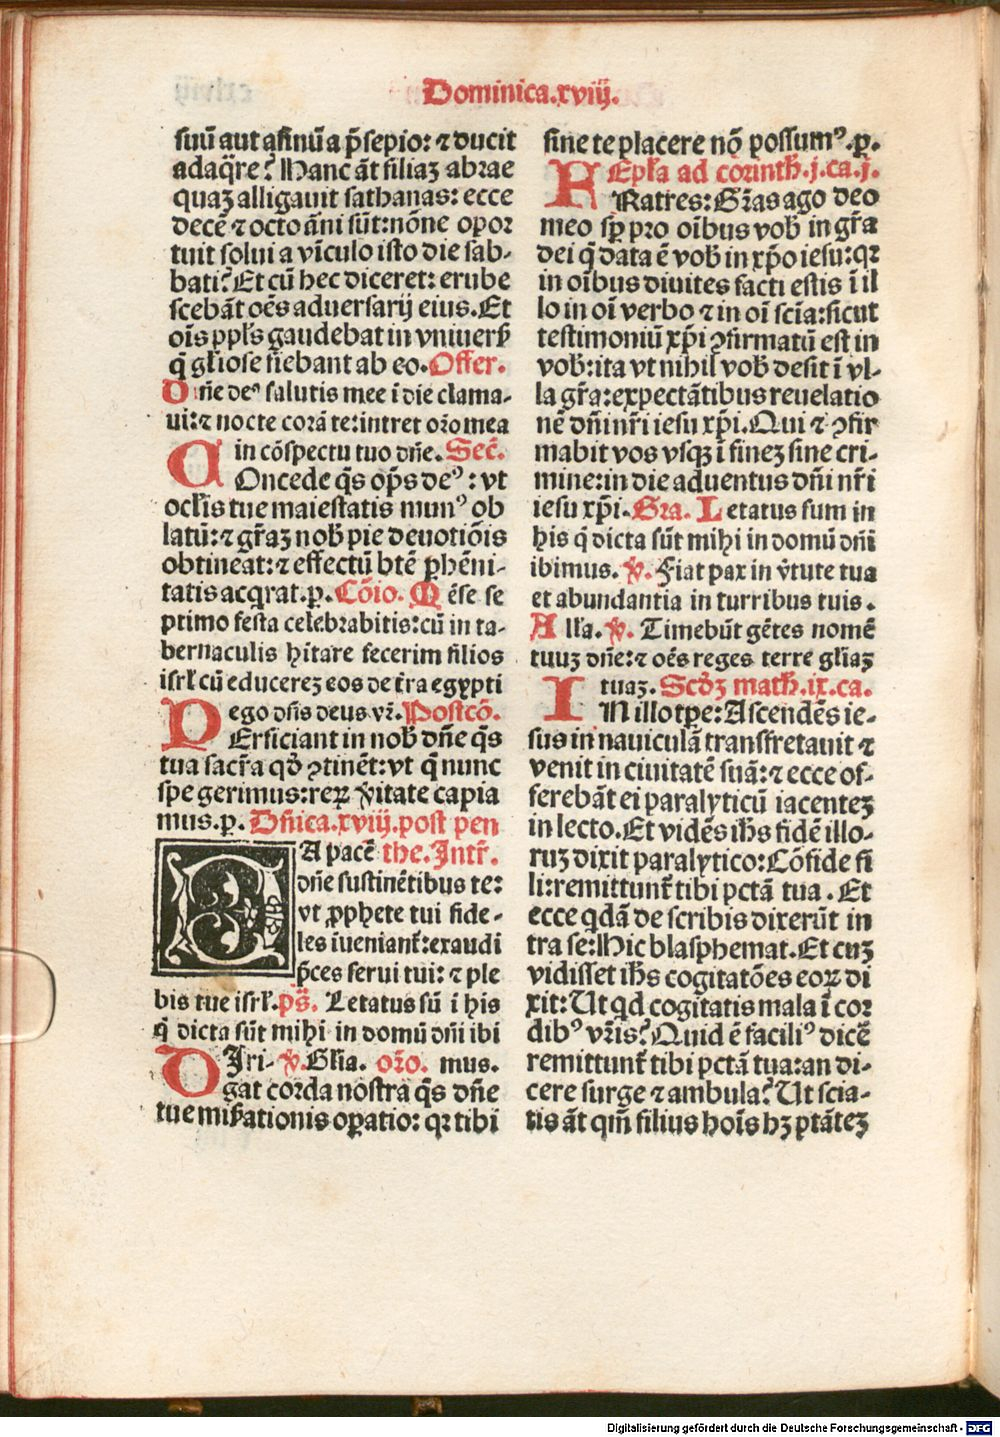 Dominica.xviij.
suū aut asinū a p̄sepio: ⁊ ducit
adaq̄re? Hanc āt filiaꝫ abrae
quaꝫ alligauit sathanas: ecce
decē ⁊ octo āni sūt: nōne opor
tuit solui a vīculo isto die sab-
bati? Et cū hec diceret: erube
scebāt oēs aduersarij eius. Et
oīs ppl̄s gaudebat in vniuerſ̄
q̄ gl̄iose fiebant ab eo. Offer.
Dn̄e deꝰ salutis mee ī die clama-
ui: ⁊ nocte corā te: intret or̄o mea
in cōspectu tuo dn̄e. Secr̄.
COncede q̄s op̄s deꝰ: vt
ocl̄is tue maiestatis munꝰ ob
latū: ⁊ gr̄aꝫ nob̄ pie deuotiōis
obtineat: ⁊ effectū btē ꝑhēni-
tatis acq̄rat. ꝑ. Cōio. Mēse se
ptimo festa celebrabitis: cū in ta-
bernaculis hītare fecerim filios
isrl̄ cū educereꝫ eos de t̄ra egypti
ego dn̄s deus vr̄. Postcō.
PErficiant in nob̄ dn̄e q̄s
tua sacr̄a qd̄ ꝯtinēt: vt q̄ nunc
spe gerimus: reꝝ v̄itate capia
mus. ꝑ. Dn̄ica.xviij.post pen
the. Intr̄.
DA pacē
dn̄e sustinētibus te:
vt ꝓphete tui fide-
les īueniant̄: exaudi
p̄ces serui tui: ⁊ ple
bis tue isrl̄. ps̄. Letatus sū ī his
q̄ dicta sūt mihi in domū dn̄i ibi
mus. ℣. Gl̄ia. or̄o.
DIri-
gat corda nostra q̄s dn̄e
tue mis̄ationis oꝑatio: qꝛ tibi
sine te placere nō possumꝰ. ꝑ.
Epl̄a ad corinth̄.j.ca.j.
FRatres: Gr̄as ago deo
meo sp̄ pro oībus vob̄ in gr̄a
dei q̄ data ē vob̄ in xp̄o iesu: qꝛ
in oībus diuites facti estis ī il
lo in oī verbo ⁊ in oī scīa: sicut
testimoniū xp̄i ꝯfirmatū est in
vob̄: ita vt nihil vob̄ desit ī vl-
la gr̄a: expectātibus reuelatio
nē dn̄i nr̄i iesu xp̄i. Qui ⁊ ꝯfir
mabit vos vsqꝫ ī fineꝫ sine cri-
mine: in die aduentus dn̄i nr̄i
iesu xp̄i. Gra. Letatus sum in
his q̄ dicta sūt mihi in domū dn̄i
ibimus. ℣. Fiat pax in v̄tute tua
et abundantia in turribus tuis.
All̄a. ℣. Timebūt gētes nomē
tuuꝫ dn̄e: ⁊ oēs reges terre gl̄iaꝫ
tuaꝫ. Scd̄ꝫ math̄.ix.ca.
IN illo tꝑe: Ascendēs ie-
sus in nauiculā transfretauit ⁊
venit in ciuitatē suā: ⁊ ecce of-
ferebāt ei paralyticū iacenteꝫ
in lecto. Et vidēs ih̄s fidē illo-
ruꝫ dixit paralytico: Cōfide fi
li: remittunt̄ tibi pctā tua. Et
ecce qdā de scribis dixerūt in
tra se: Hic blasphemat. Et cuꝫ
vidisset ih̄s cogitatōes eoꝝ di
xit: Ut qd cogitatis mala ī cor
dibꝰ vr̄is? Quid ē faciliꝰ dicē
remittunt̄ tibi pctā tua: an di-
cere surge ⁊ ambula? Ut scia-
tis āt qm̄ filius hoīs hꝫ ptāteꝫ
Digitalisierung gefördert durch die Deutsche Forschungsgemeinschaft - DFG